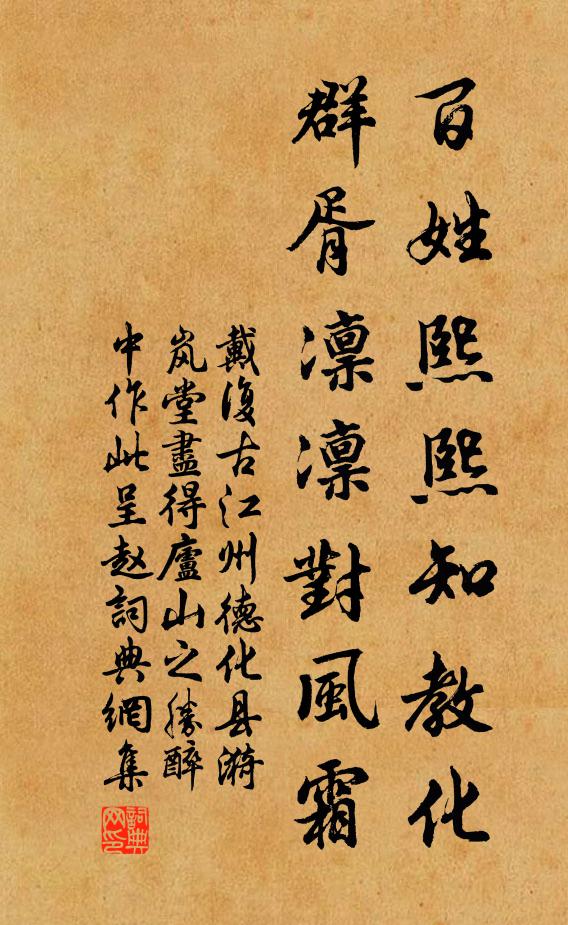 百姓熙熙知教化
群胥凛凛對風霜
戴復古江州德化县漪
岚堂盡得廬山之勝醉
中作此呈赵詞典網集
詞典网印